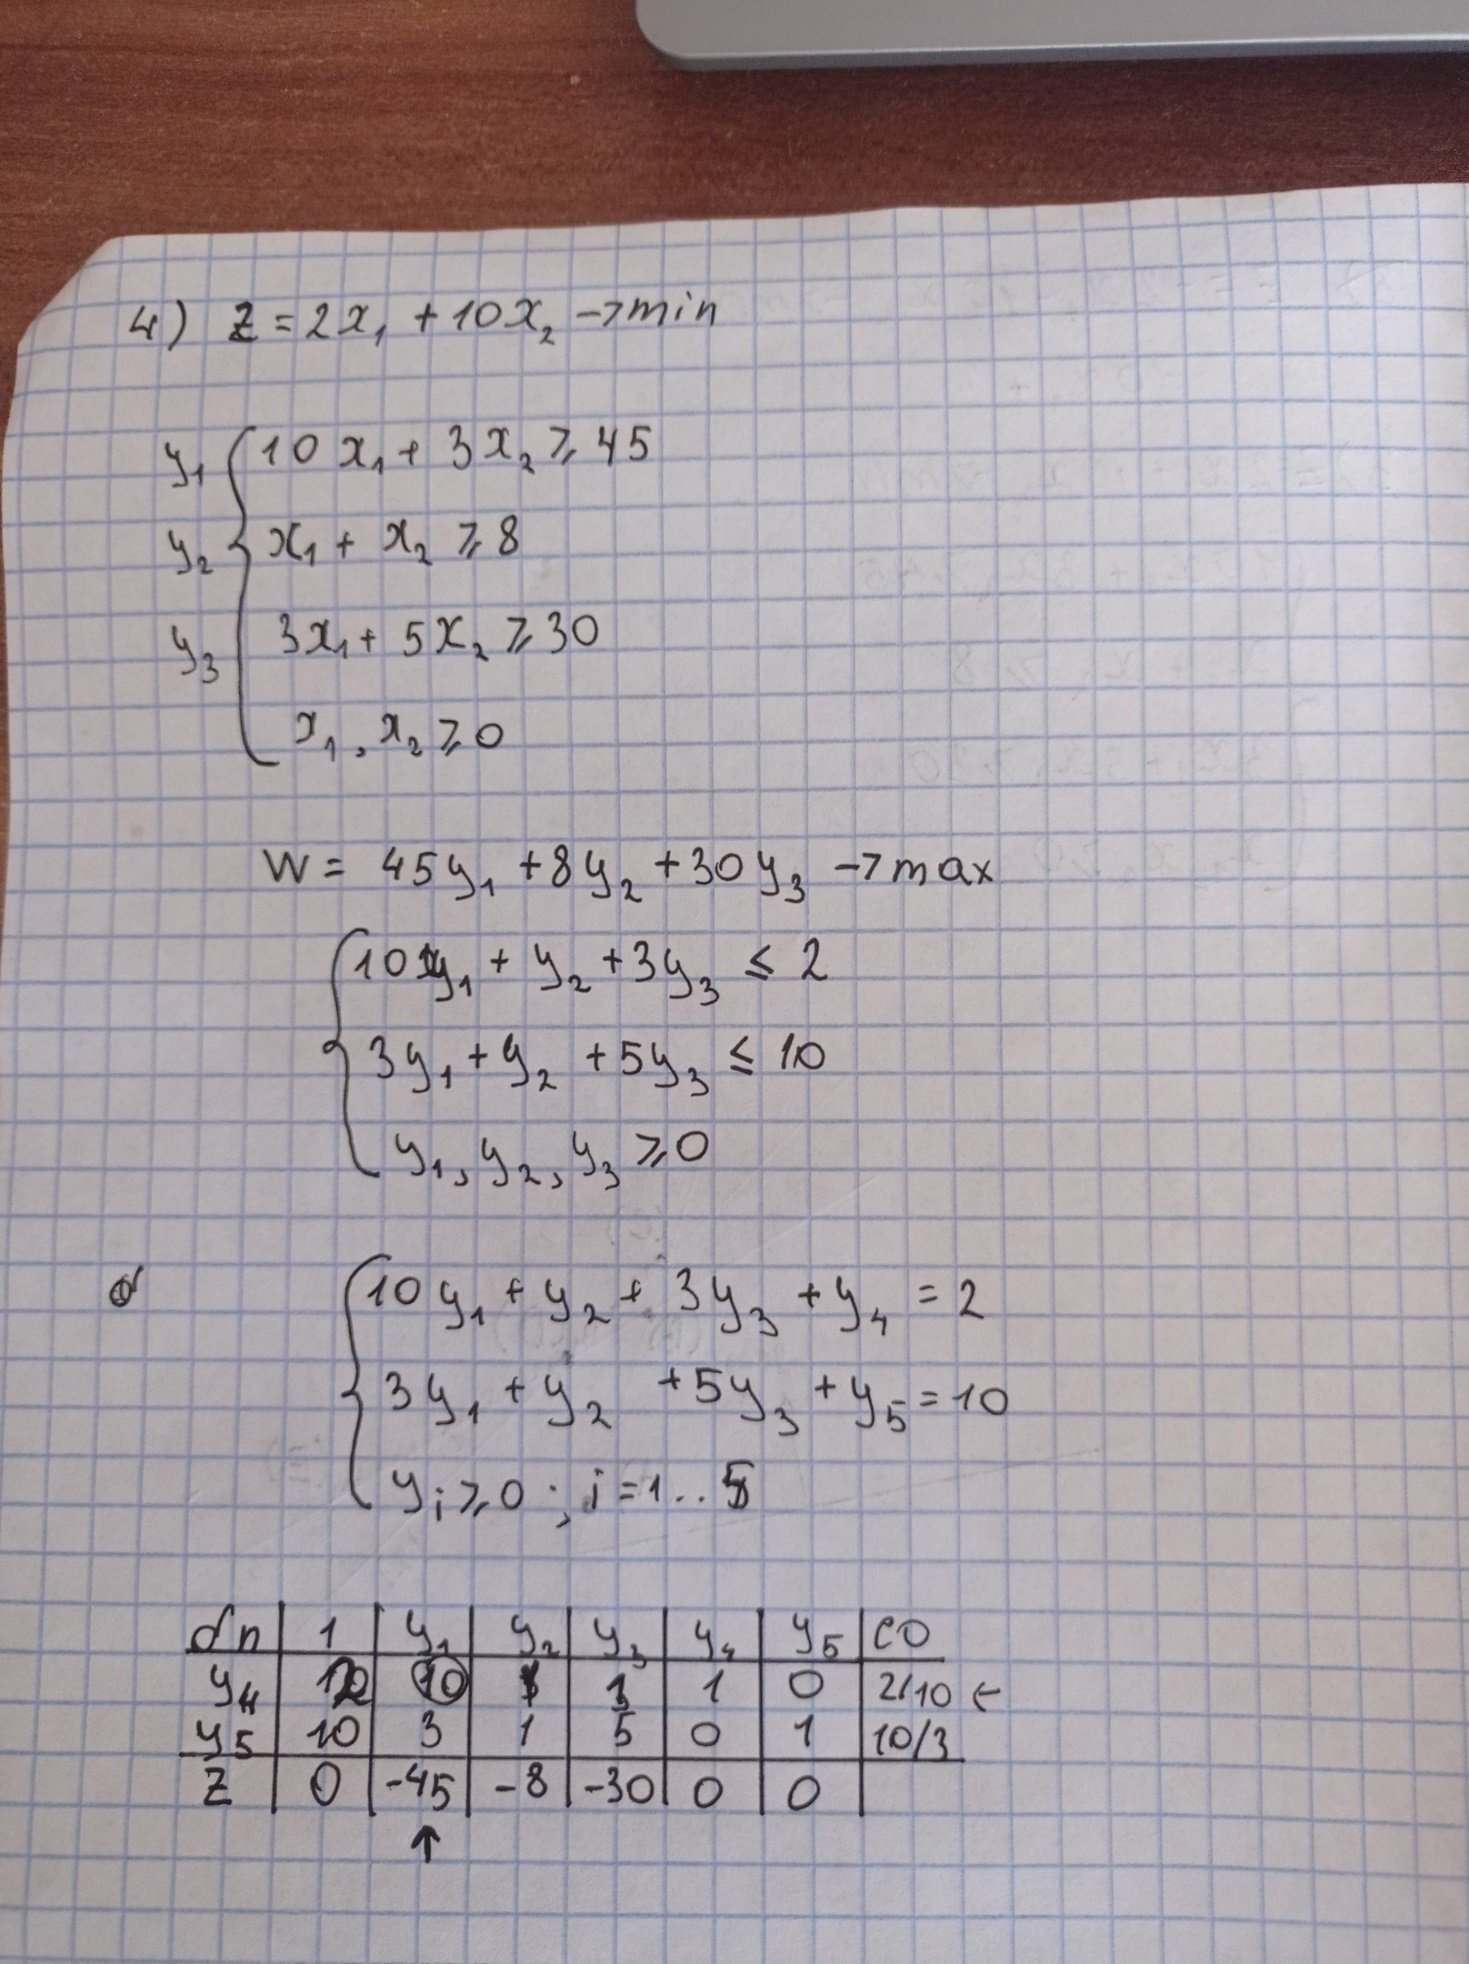 4) Z = 2x₁ + 10x₂ → min
y₁ 10x₁ + 3x₂ ⩾ 45
y₂ x₁ + x₂ ⩾ 8
y₃ 3x₁ + 5x₂ ⩾ 30
x₁, x₂ ⩾ 0
W = 45y₁ + 8y₂ + 30y₃ → max
10y₁ + y₂ + 3y₃ ≤ 2
3y₁ + y₂ + 5y₃ ≤ 10
y₁, y₂, y₃ ⩾ 0
10y₁ + y₂ + 3y₃ + y₄ = 2
3y₁ + y₂ + 5y₃ + y₅ = 10
yᵢ ⩾ 0 ; i = 1..5
бп 1 y₁ y₂ y₃ y₄ y₅ СО
y₄ 10 1 0 2/10 ←
y₅ 10 3 1 5 0 1 10/3
Z 0 -45 -8 -30 0 0
↑